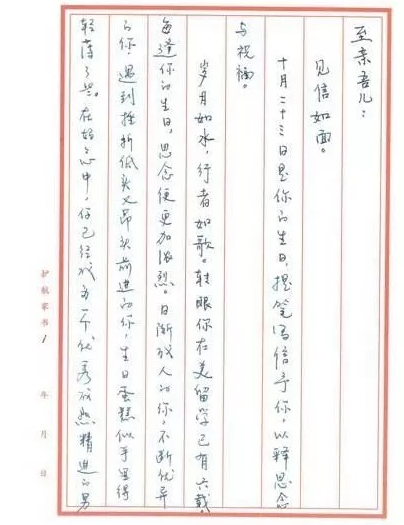 至亲吾儿：
见信如面。
十月二十三日是你的生日,提笔写信予你,以释思念
与祝福。
岁月如水,行者如歌。转眼你在美留学已有六载
每逢你的生日,思念便更加浓烈。日渐成人的你,不断优异
的你,遇到挫折低头又昂头前进的你,生日蛋糕似乎显得
轻薄了些。在妈々心中,你已经成为一个优秀成熟精进的男
护航家书 1 年 月 日